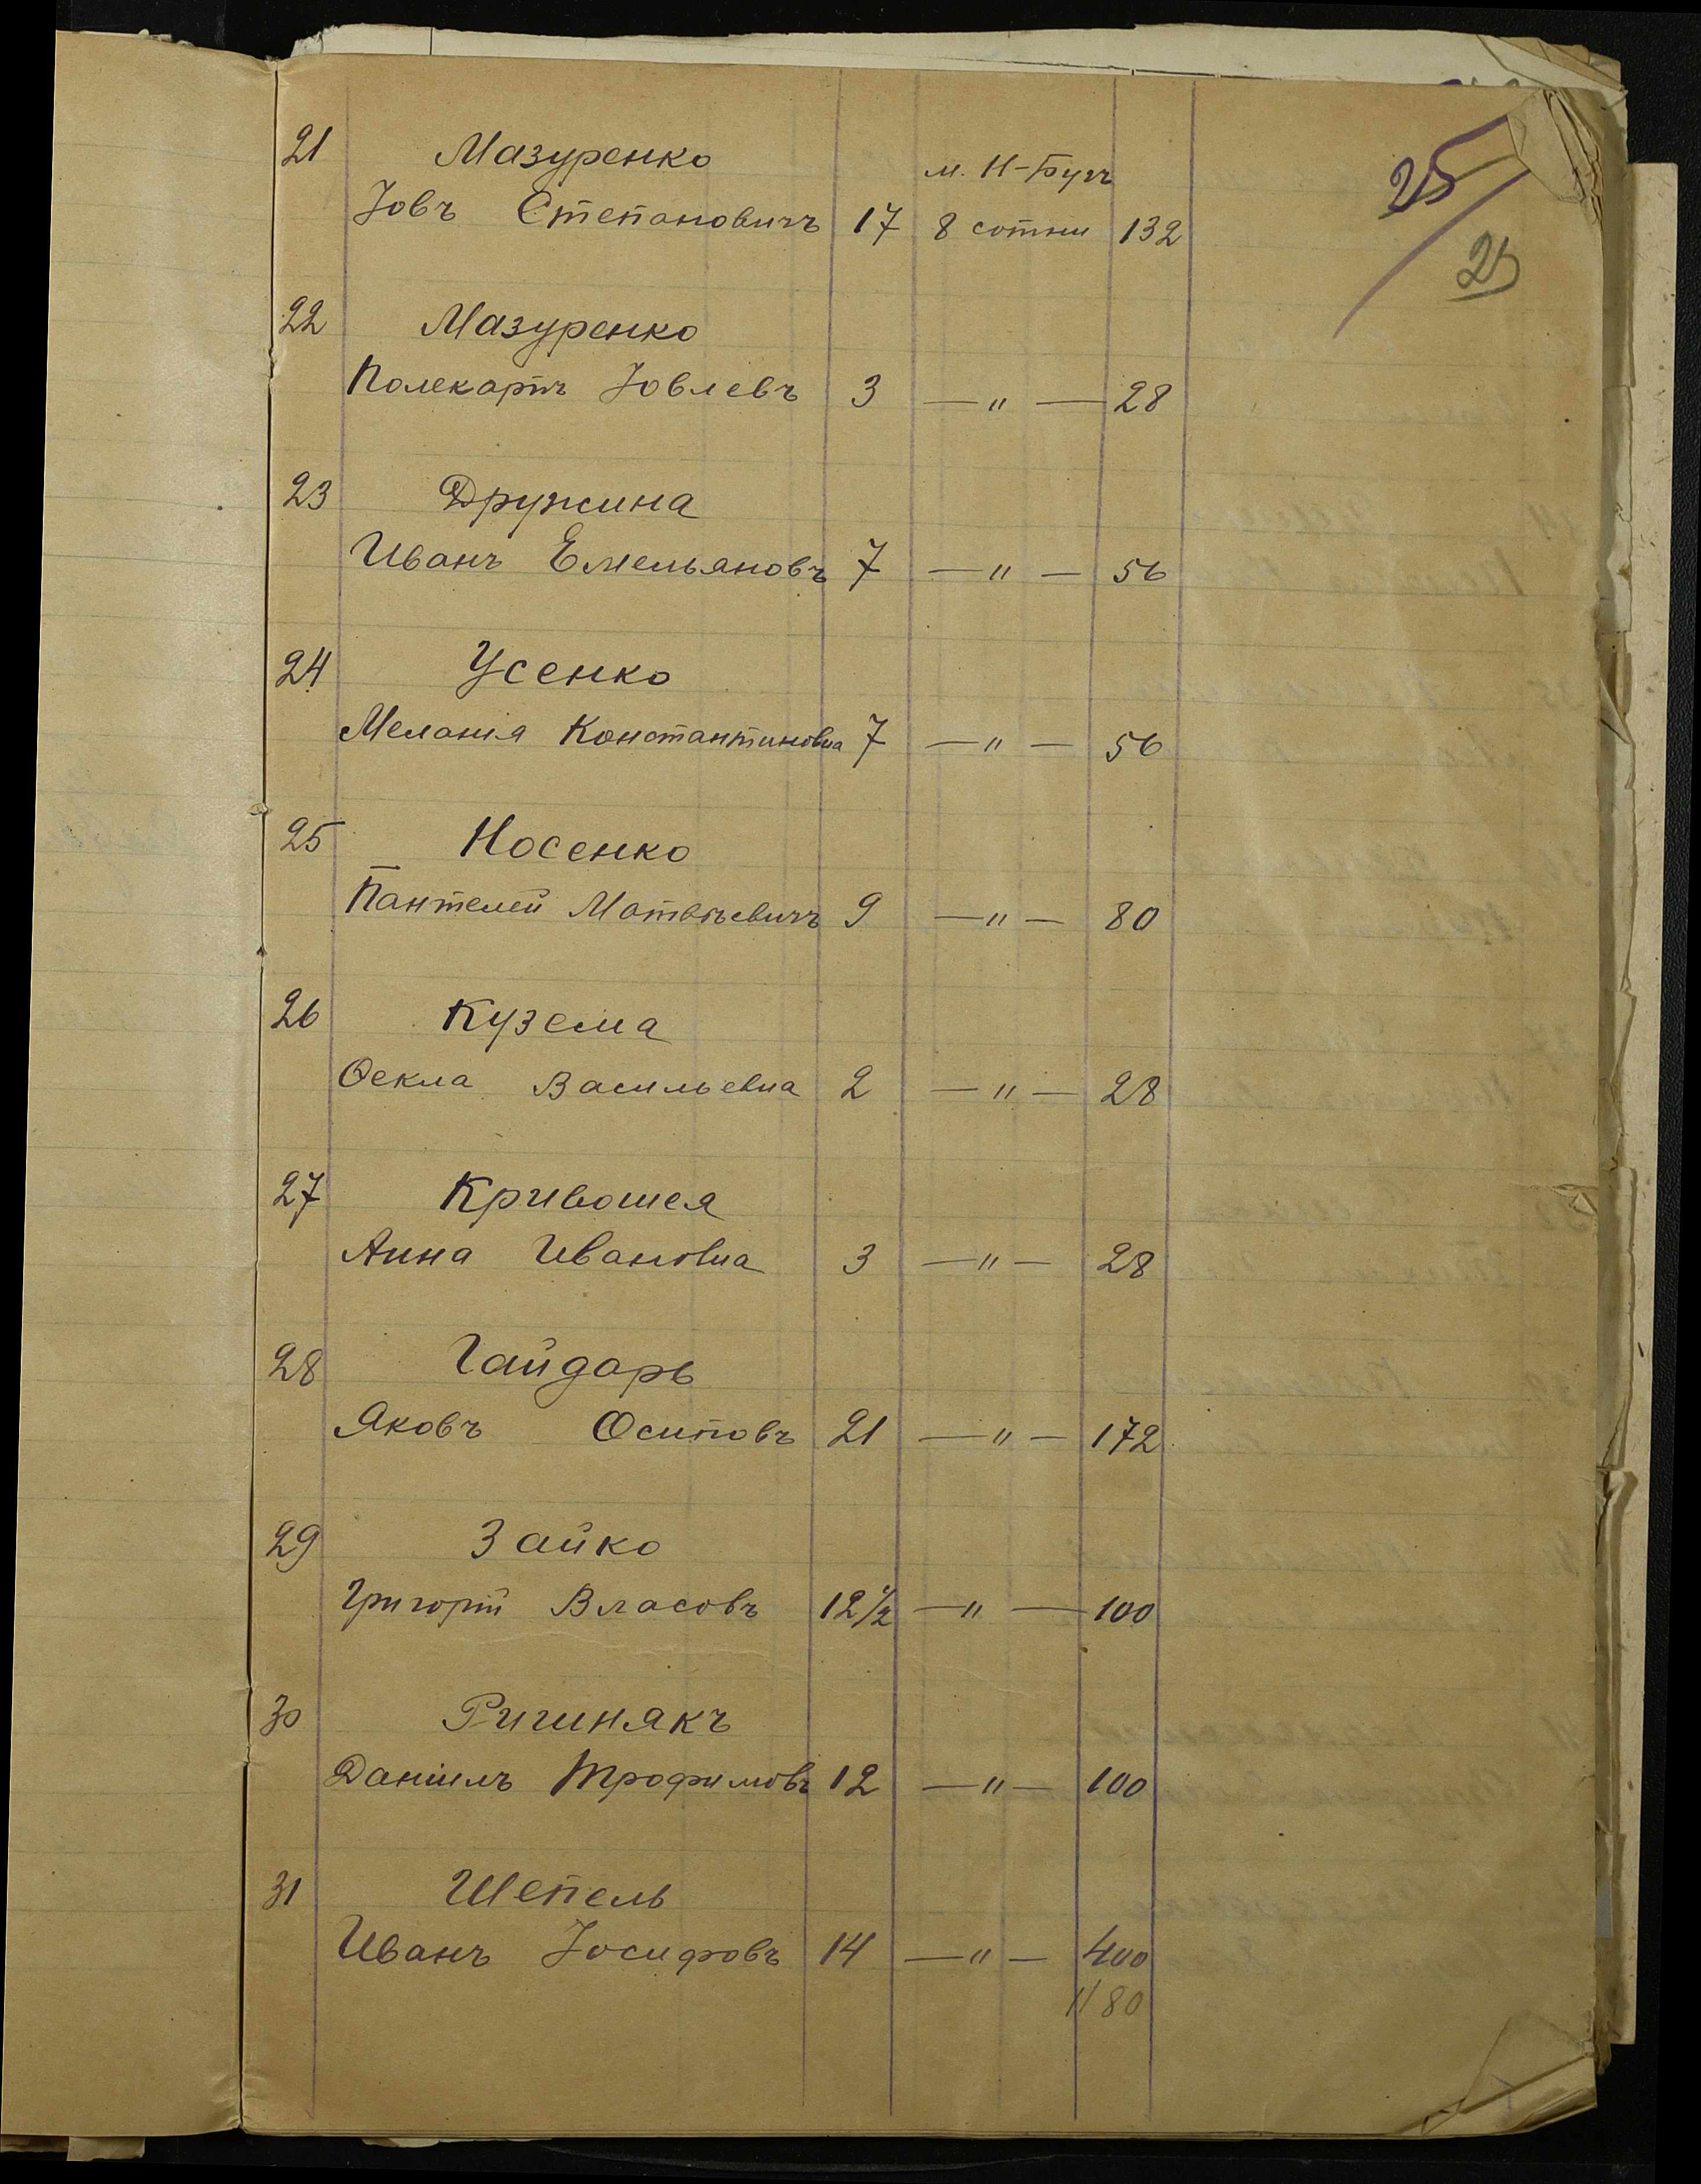 25
25
21 Мазуренко м. Н-Бугъ
Іовъ Степановичъ 17 8 сотни 132
22 Мазуренко
Полекарпъ Іовлевъ 3 — „ — 28
23 Дружина
Иванъ Емельяновъ 7 — „ — 56
24 Усенко
Меланія Константиновна 7 — „ — 56
25 Носенко
Пантелей Матвѣевичъ 9 — „ — 80
26 Кузема
Ѳекла Васильевна 2 — „ — 28
27 Кривошея
Анна Ивановна 3 — „ — 28
28 Гайдарь
Яковъ Осиповъ 21 — „ — 172
29 Зайко
Григорій Власовъ 12½ — „ — 100
30 Ригинякъ
Даніилъ Трофимовъ 12 — „ — 100
31 Шепель
Иванъ Іосифовъ 14 — „ — 400
1180